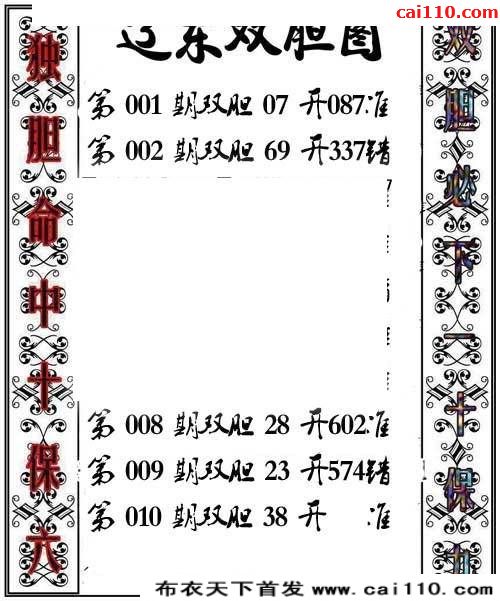 彩红网
cai110.com
辽东双胆图
独胆命中十保六
第 001 期双胆 07 开087准
第 002 期双胆 69 开337错
第 008 期双胆 28 开602准
第 009 期双胆 23 开574错
第 010 期双胆 38 开 准
双胆必下一十保九
布衣天下首发 www.cai110.com